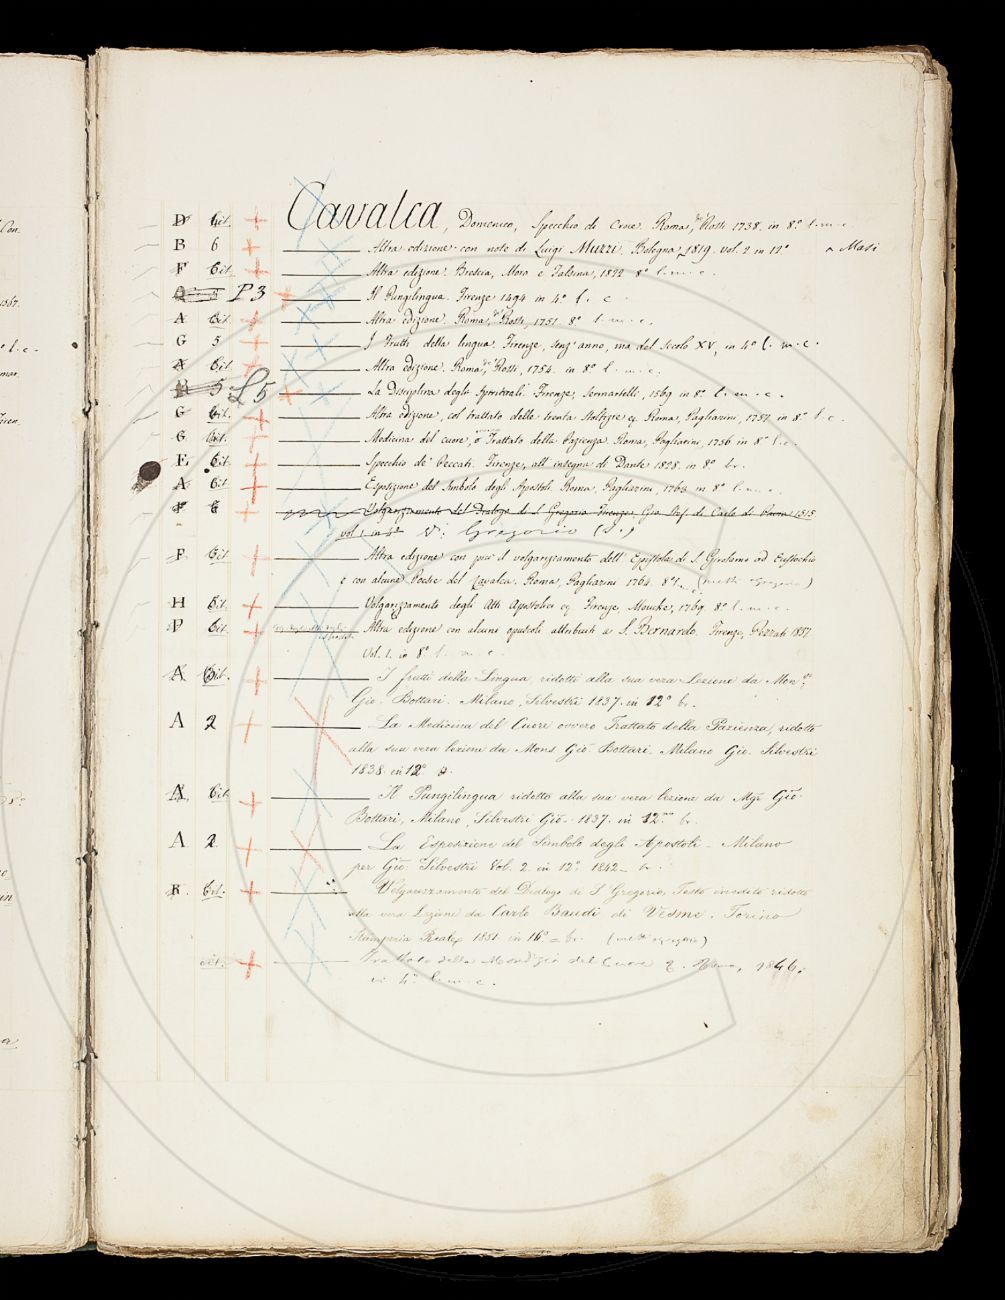 D Cit. + Cavalca, Domenico, Specchio di Croce. Roma, de' Rossi 1738. in 8.º l. m. c.
B 6 + Altra edizione con note di Luigi Muzzi. Bologna 1819. vol. 2 in 12º ^ Masi
F Cit. + Altra edizione. Brescia, Moro e Falsina, 1822 8º l. m. c.
P 3 Il Pungilingua. Firenze 1494 in 4º l. c.
A Cit. + Altra edizione. Roma, de' Rossi, 1751. 8º l. m. c.
G 5 + I Frutti della lingua. Firenze, senz'anno, ma del Secolo XV, in 4º l. m. c.
A Cit. + Altra edizione. Roma, de' Rossi, 1754. in 8º l. m. c.
5 L 5 + La Disciplina degli Spirituali. Firenze, Sermartelli, 1569 in 8º l. m. c.
G Cit. + Altra edizione, col trattato delle trenta Stoltizie Roma, Pagliarini, 1757. in 8º l. c.
G Cit. + Medicina del cuore, o Trattato della Pazienza. Roma, Pagliarini, 1756 in 8º l. c.
E Cit. + Specchio de' Peccati. Firenze, all'insegna di Dante 1828. in 8º br.
A Cit + Esposizione del Simbolo degli Apostoli. Roma, Pagliarini, 1763 in 8º l. m. c.
F 6 + Volgarizzamento del Dialogo di S. Gregorio Firenze, Gio. di Carlo di Pavia 1515
vol. 1. in 8º V: Gregorio (S.)
F Cit + Altra edizione con più il volgarizzamento dell'Epistola di S. Girolamo ad Eustochio
e con alcune Poesie del Cavalca. Roma, Pagliarini 1764. 8º l. m. c. (metti Gregorio)
H Cit. + Volgarizzamento degli Atti Apostolici Firenze, Moucke, 1769. 8º l. m. c.
P Cit + Altra edizione con alcuni opuscoli attribuiti a S. Bernardo. Firenze, Pezzati 1837
Vol. 1. in 8º l. m. c.
A Cit. + I frutti della Lingua, ridotti alla sua vera Lezione da Mon.r
Gio. Bottari. Milano, Silvestri 1837. in 12º br.
A 2 + La Medicina del Cuore ovvero Trattato della Pazienza, ridotto
alla sua vera lezione da Mons Gio Bottari. Milano Gio. Silvestri
1838. in 12º
A Cit. + Il Pungilingua ridotto alla sua vera lezione da Mgr Gio
Bottari, Milano, Silvestri Gio. 1837. in 12.mo br.
A 2 + La Esposizione del Simbolo degli Apostoli - Milano
per Gio. Silvestri Vol. 2. in 12º 1842 - br.
Cit. + Volgarizzamento del Dialogo di S. Gregorio, Testo inedito ridotto
alla vera Lezione da Carlo Baudi di Vesme. Torino
Stamperia Reale 1851 in 16º = br. (metti Gregorio)
cit. + Trattato della Mondizia del Cuore Roma, 1846,
in 4º l. m. c.